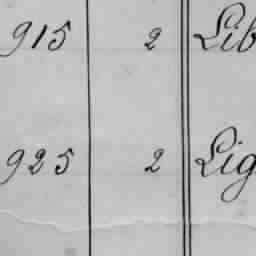 915 2 Lib
925 2 Lig